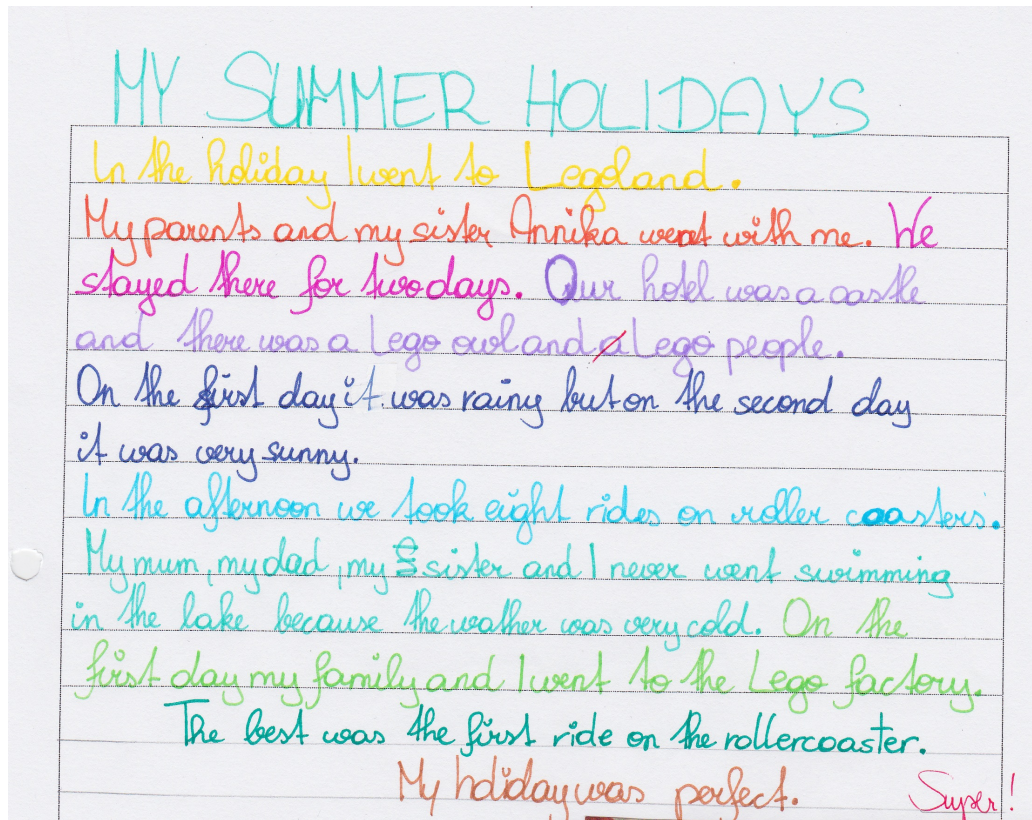 MY SUMMER HOLIDAYS
In the holiday I went to Legoland.
My parents and my sister Annika went with me. We
stayed there for two days. Our hotel was a castle
and there was a Lego owl and a Lego people.
On the first day it was rainy but on the second day
it was very sunny.
In the afternoon we took eight rides on roller coasters.
My mum, my dad, my sister and I never went swimming
in the lake because the weather was very cold. On the
first day my family and I went to the Lego factory.
The best was the first ride on the rollercoaster.
My holiday was perfect. Super!